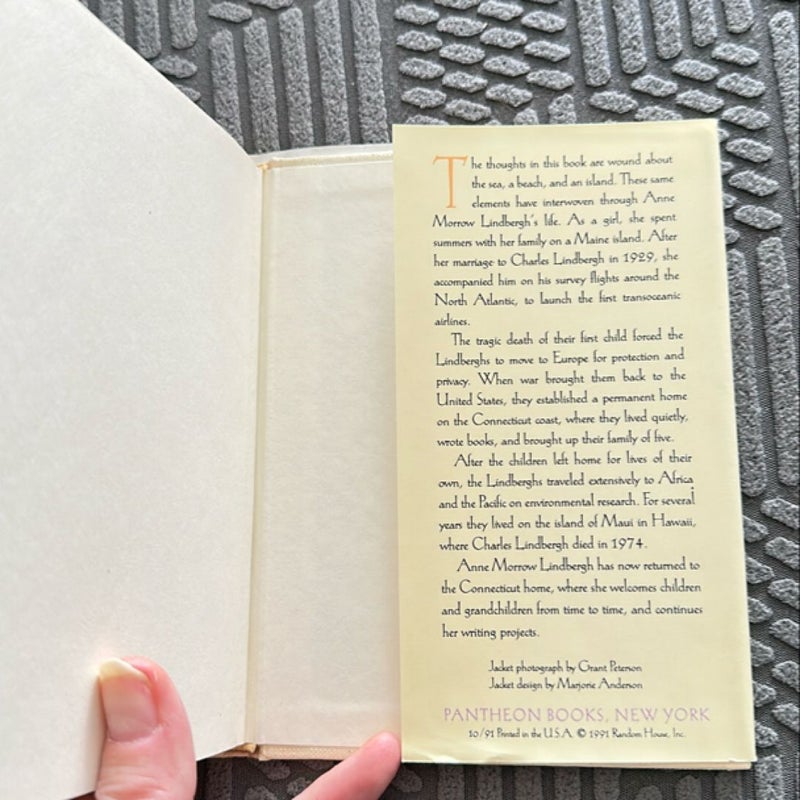 The thoughts in this book are wound about
the sea, a beach, and an island. These same
elements have interwoven through Anne
Morrow Lindbergh's life. As a girl, she spent
summers with her family on a Maine island. After
her marriage to Charles Lindbergh in 1929, she
accompanied him on his survey flights around the
North Atlantic, to launch the first transoceanic
airlines.
The tragic death of their first child forced the
Lindberghs to move to Europe for protection and
privacy. When war brought them back to the
United States, they established a permanent home
on the Connecticut coast, where they lived quietly,
wrote books, and brought up their family of five.
After the children left home for lives of their
own, the Lindberghs traveled extensively to Africa
and the Pacific on environmental research. For several
years they lived on the island of Maui in Hawaii,
where Charles Lindbergh died in 1974.
Anne Morrow Lindbergh has now returned to
the Connecticut home, where she welcomes children
and grandchildren from time to time, and continues
her writing projects.
Jacket photograph by Grant Peterson
Jacket design by Marjorie Anderson
PANTHEON BOOKS, NEW YORK
10/91 Printed in the U.S.A. © 1991 Random House, Inc.